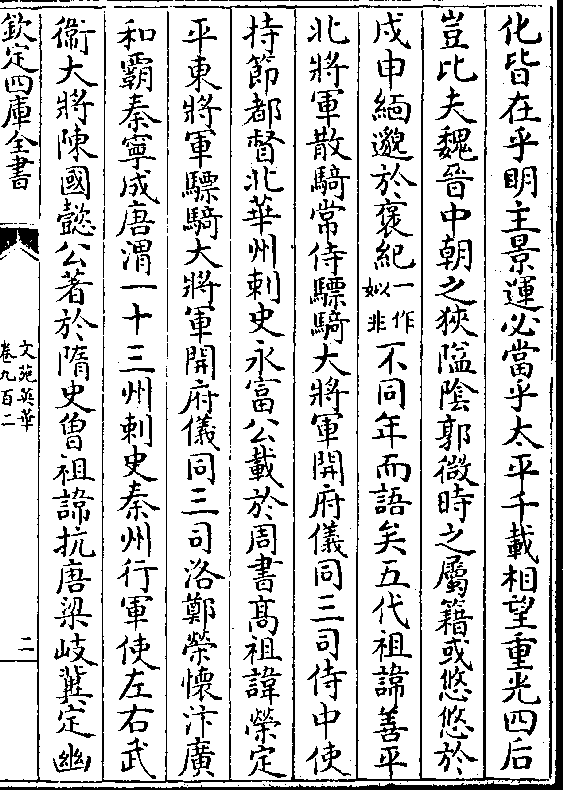 化皆在乎明主景運必當乎太平千載相望重光四后
豈比夫魏晉中朝之狹隘陰郭微時之屬籍或悠悠於
戌申緬邈於褒紀一作姒非不同年而語矣五代祖諱善平
北將軍散騎常侍驃騎大將軍開府儀同三司侍中使
持節都督北華州刺史永富公載於周書髙祖諱榮定
平東將軍驃騎大將軍開府儀同三司洛鄭榮懷汴廣
和霸秦寧成唐渭一十三州刺史秦州行軍使左右武
衞大將陳國懿公著於隋史曾祖諱抗唐梁岐冀定幽
欽定四庫全書
文苑英華
卷九百二
二